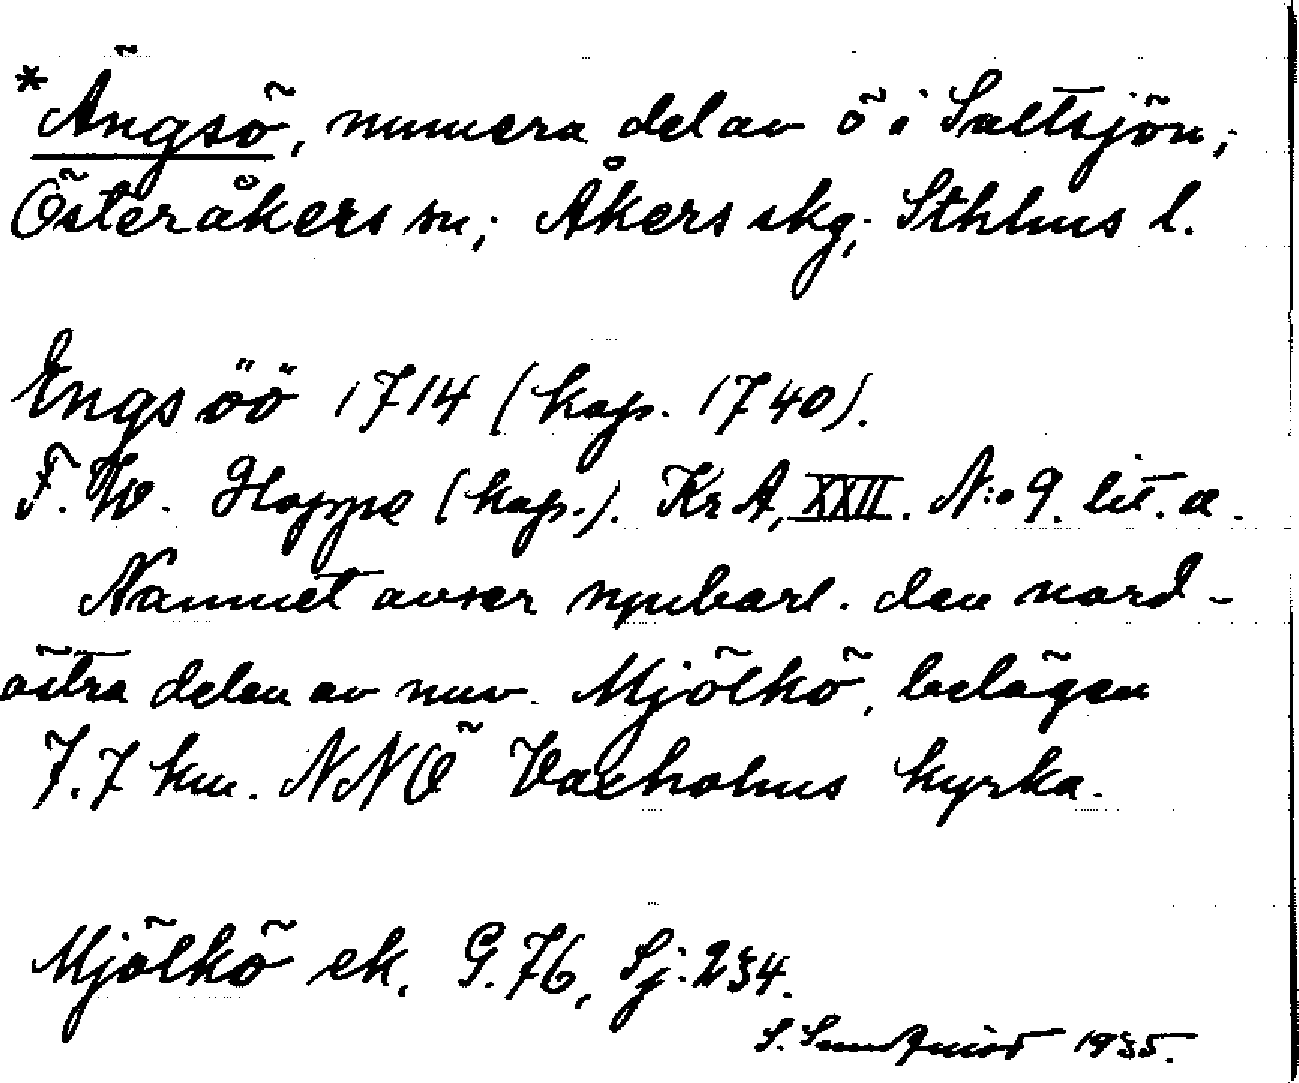 *Ängsö, numera del av ö i Saltsjön;
Österåkers sn; Åkers skg; Sthlms l.
Engsöö 1714 (kop. 1740).
F. W. Hoppe (kop.). KrA, XXII. N:o 9. lit. a.
Namnet avser synbarl. den nord-
östra delen av nuv. Mjölkö, belägen
7.7 km. NNÖ Vaxholms kyrka.
Mjölkö ek. G. 76, Sj: 234.
S. 1935.